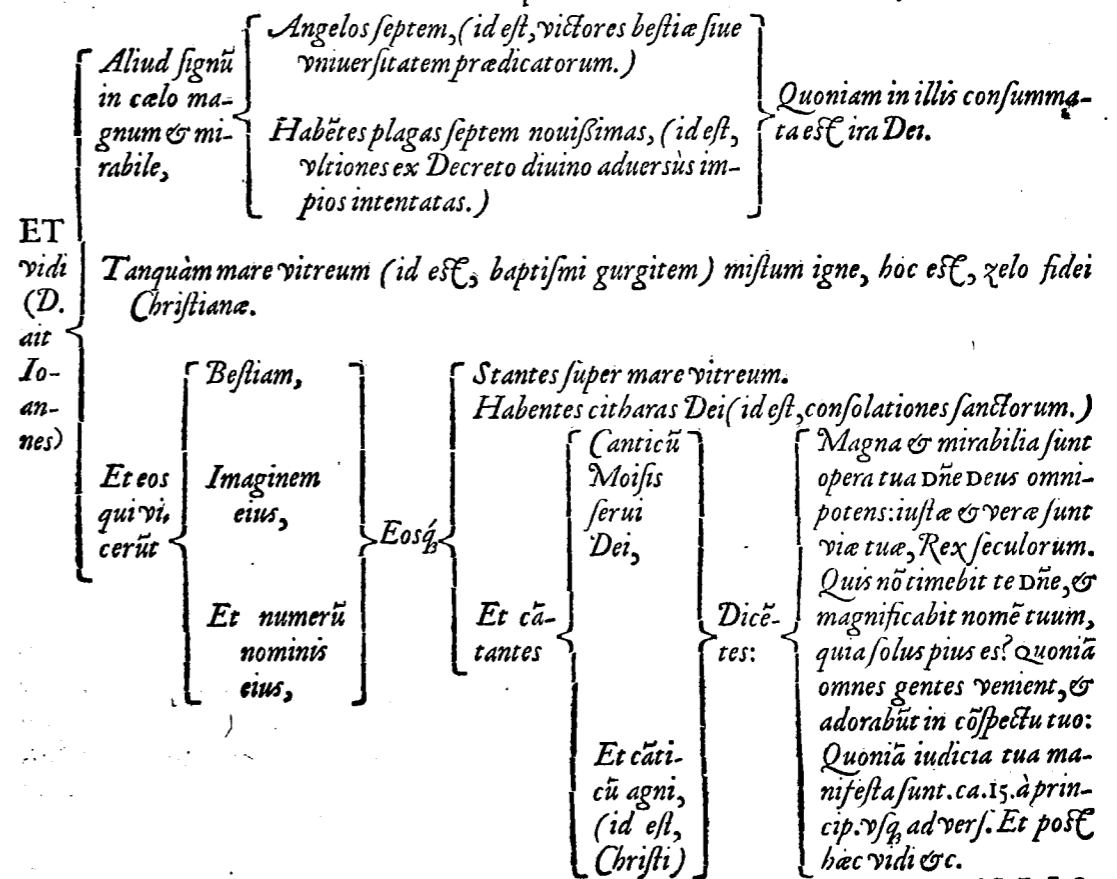 ET
vidi
(D.
ait
Io-
an-
nes)
Aliud ſignũ
in cælo ma-
gnum & mi-
rabile,
Angelos ſeptem, (id eſt, victores beſtiæ ſiue
vniuerſitatem prædicatorum.)
Habẽtes plagas ſeptem nouiſſimas, (id eſt,
vltiones ex Decreto diuino aduersùs im-
pios intentatas.)
Quoniam in illis conſumma-
ta eſt ira Dei.
Tanquàm mare vitreum (id eſt, baptiſmi gurgitem) miſtum igne, hoc eſt, zelo fidei
Chriſtianæ.
Et eos
qui vi-
cerũt
Beſtiam,
Imaginem
eius,
Et numerũ
nominis
eius,
Eosq́;
Stantes ſuper mare vitreum.
Habentes citharas Dei (id eſt, conſolationes ſanctorum.)
Et cã-
tantes
Canticũ
Moiſis
ſerui
Dei,
Et cãti-
cũ agni,
(id eſt,
Chriſti)
Dicẽ-
tes:
Magna & mirabilia ſunt
opera tua Dñe Deus omni-
potens: iuſtæ & veræ ſunt
viæ tuæ, Rex ſeculorum.
Quis nõ timebit te Dñe, &
magnificabit nomẽ tuum,
quia ſolus pius es? Quoniã
omnes gentes venient, &
adorabũt in cõſpectu tuo:
Quoniã iudicia tua ma-
nifeſta ſunt. ca. 15. à prin-
cip. vſq; ad verſ. Et poſt
hæc vidi &c.